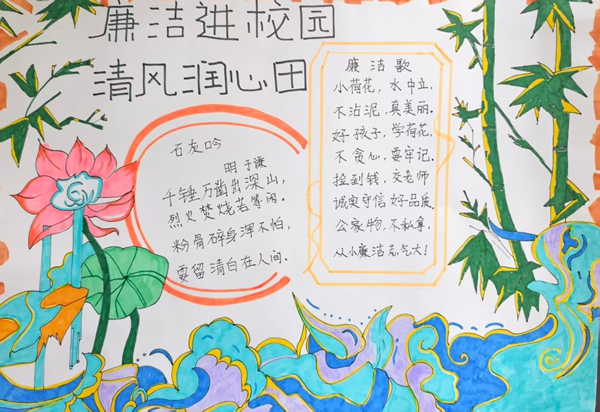 廉洁进校园
清风润心田
石友吟
明于谦
千锤万凿出深山,
烈火焚烧若等闲.
粉骨碎身浑不怕,
要留清白在人间.
廉洁歌
小荷花,水中立.
不沾泥,真美丽.
好孩子,学荷花,
不贪心,要牢记.
捡到钱,交老师
诚实守信好品质
公家物,不私拿,
从小廉洁志气大!